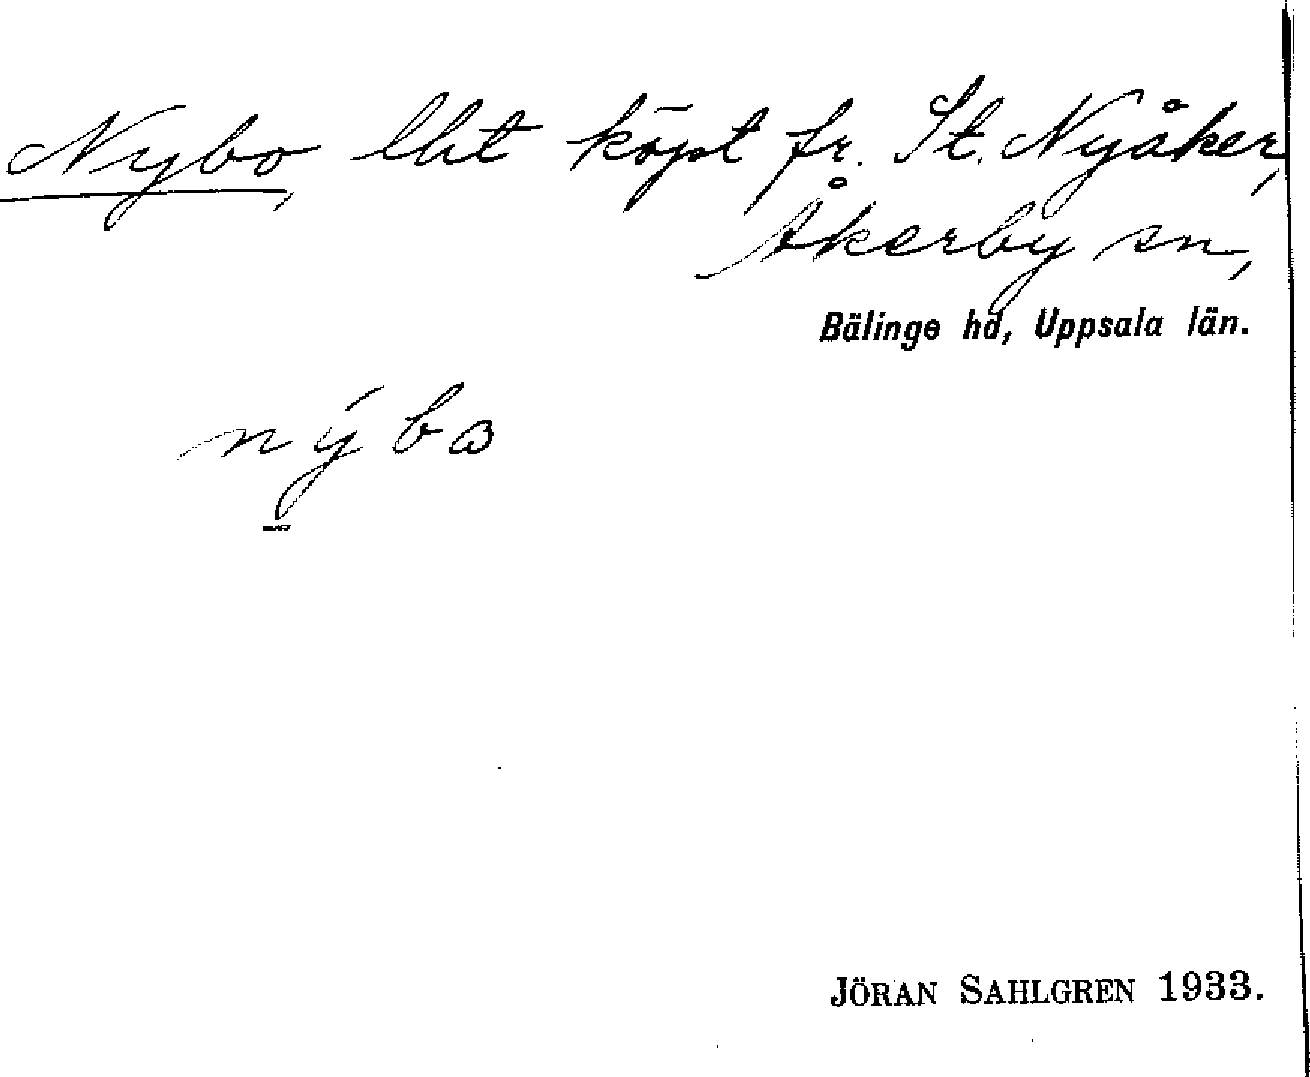 Nybo, lht köpt fr. St. Nyåker,
Åkerby sn,
Bälinge hd, Uppsala län.
nýbω
JÖRAN SAHLGREN 1933.